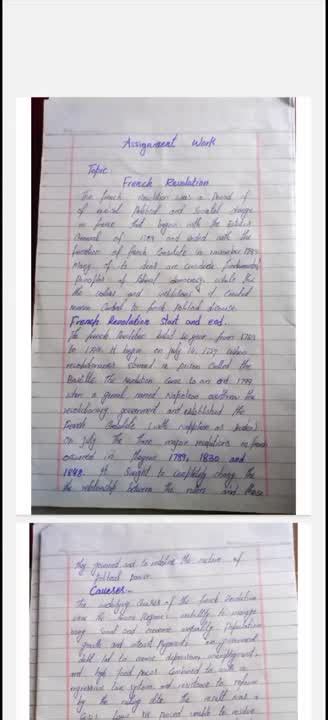 Assignment Work
Topic
French Revolution
The french revolution was a Period of
of social Political and Societal change
in france that began with the Estates
General of 1789 and ended with the
formation of french Consulate in november 1799
Many of its ideas are considered fundamental
Principles of liberal democracy while the
the values and institutions it Created
remain Central to french Political discourse.
French Revolution Start and end.
The french Revolution lasted 10 year from 1789
to 1799. It began on July 14, 1789 when
revolutionaries stormed a prison called the
Bastille The revolution came to an end 1799
when a general named Napoleon overthrew the
revolutionary government and established the
french Consulate (with napoleon as leader)
on July. The three major revolutions in france
occurred in 1789, 1830, and
1848. It Sought to completely change the
the relationship between the rulers and those
they governed and to redefine the nature of
Political power.
The underlying Causes of the french Revolution
were the Regime's inability to manage
rising Social and economic inequality. Population
growth and interest Payments on government
debt led to economic depression, unemployment
and high food prices Combined with a
regressive tax system and resistance to reform
by the ruling elite. The result was a
Crisis Louis XVI proved unable to resolve